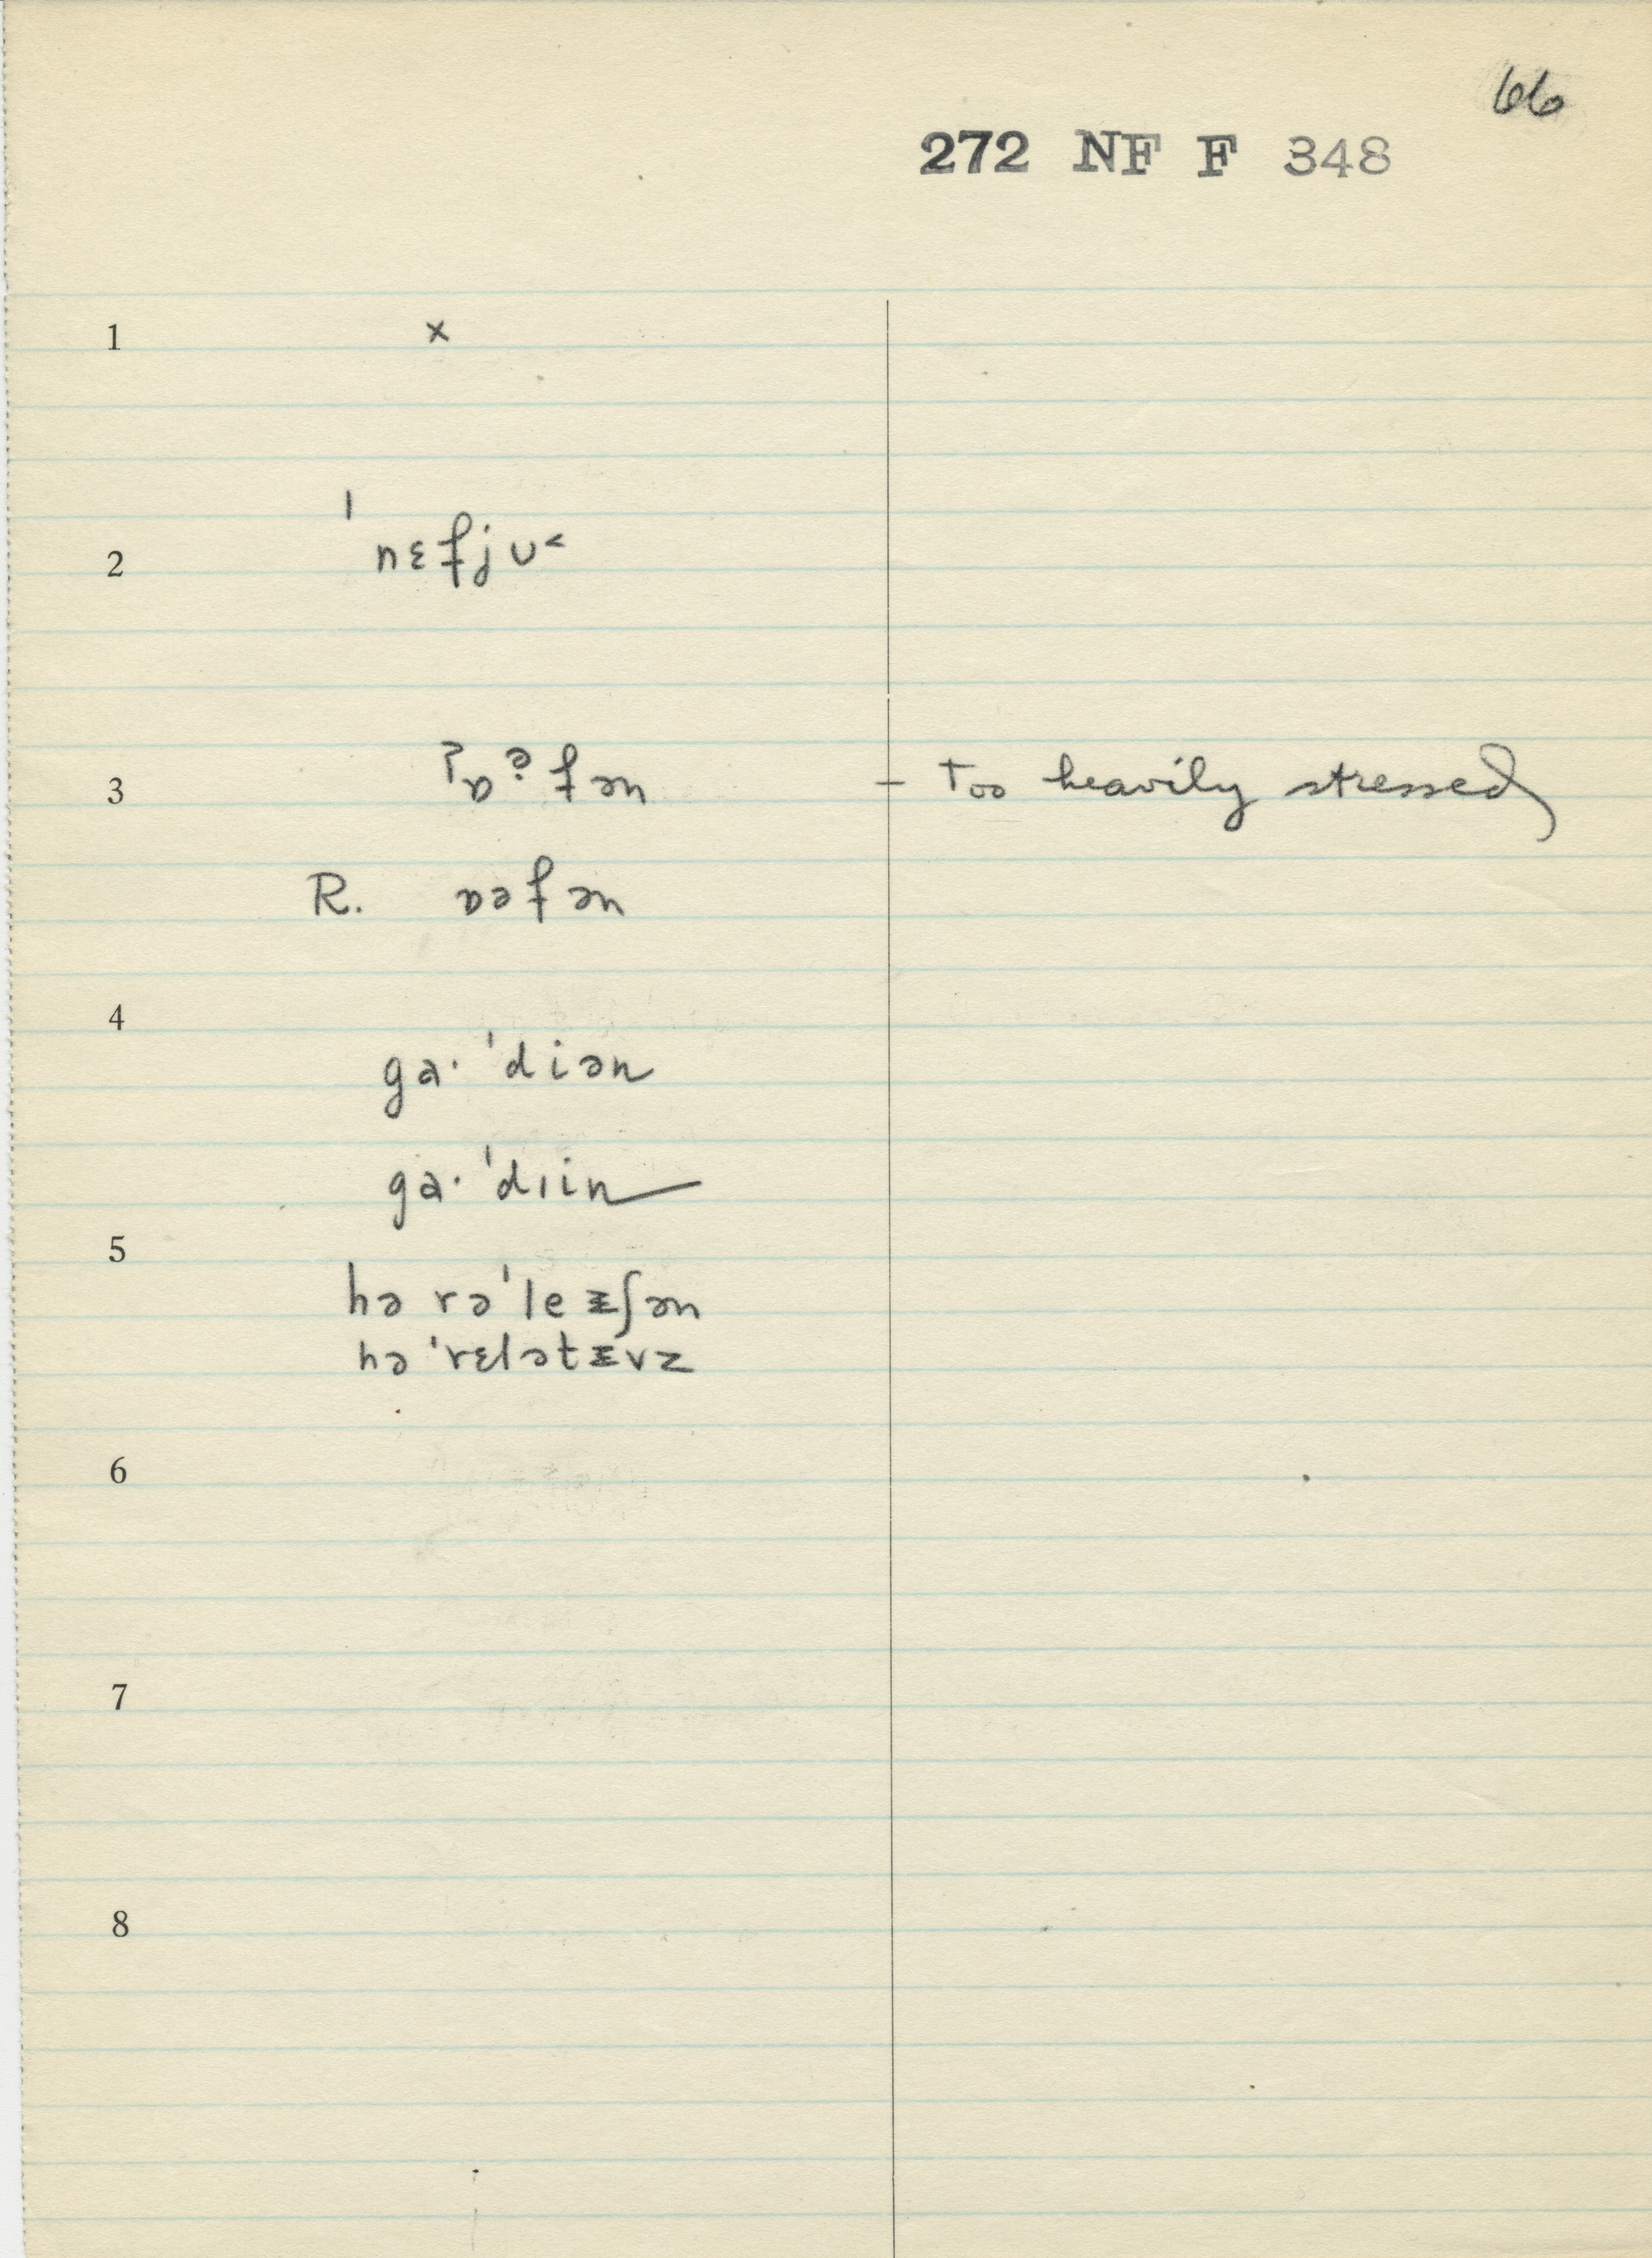 66
272 NF F 348
1 x
2 ˈnɛfjʊ˂
3 ʔɒᵊ̣fən – Too heavily stressed
R. ɒəfən
4
ga· ˈdiən
ga· ˈdɪin
5
hə rəˈleᵻʃən
hə ˈrɛlətᵻvz
6
7
8